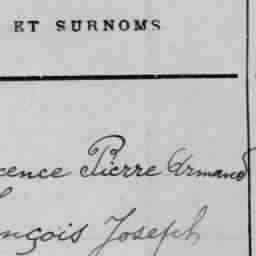 ET SURNOMS
cence Pierre Armand
nçois Joseph